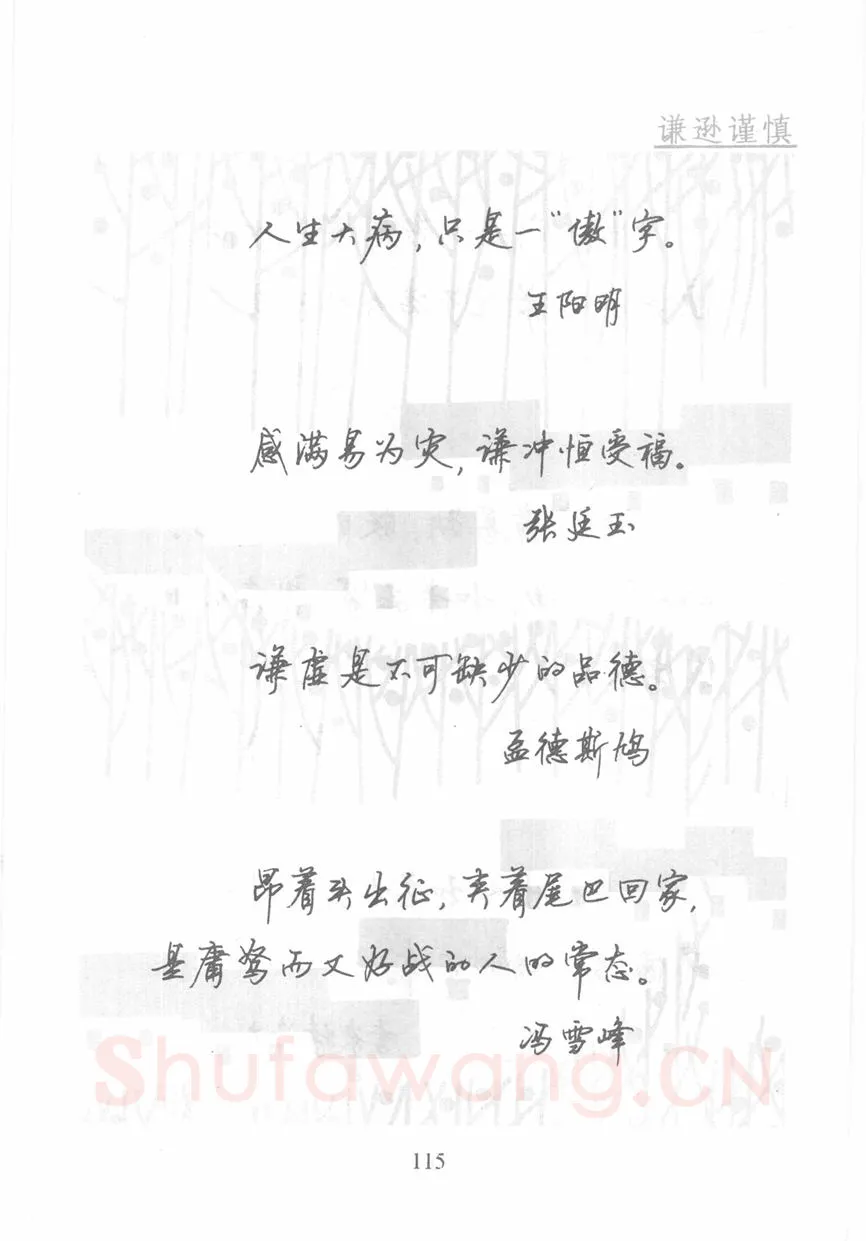 谦逊谨慎
人生大病，只是一“傲”字。
王阳明
感满易为灾，谦冲恒受福。
张廷玉
谦虚是不可缺少的品德。
孟德斯鸠
昂着头出征，夹着尾巴回家，
是庸驽而又好战的人的常态。
冯雪峰
Shufawang.CN
115